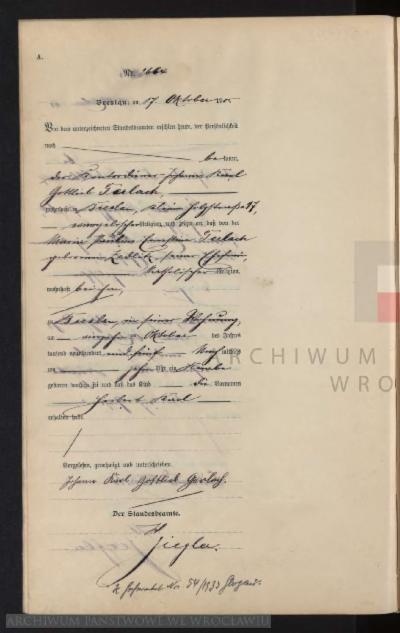 A.
Nr. 2664
Breslau, am 17. Oktober 190
Vor dem unterzeichneten Standesbeamten erschien heute, der Persönlichkeit
nach
be kannt,
der Kontordiener Johann Karl
Gottlieb Gerlach,
wohnhaft in Breslau, kleine Holzstraße
evangelischer Religion, und zeigte an, daß von der
Marie Pauline Ernestine Gerlach
geborenen seiner Ehefrau,
katholischer Religion,
wohnhaft bei ihm,
zu Breslau, in seiner Wohnung,
am Oktober des Jahres
tausend neunhundert und fünf mittags
um zehn Uhr ein Knabe
geboren worden sei und daß das Kind die Vornamen
Herbert Karl
erhalten habe.
Vorgelesen, genehmigt und unterschrieben
Johann Karl Gottlieb Gerlach.
Der Standesbeamte.
54/1933
ARCHIWUM
WRO
ARCHIWUM PAŃSTWOWE WE WROCŁAWIU